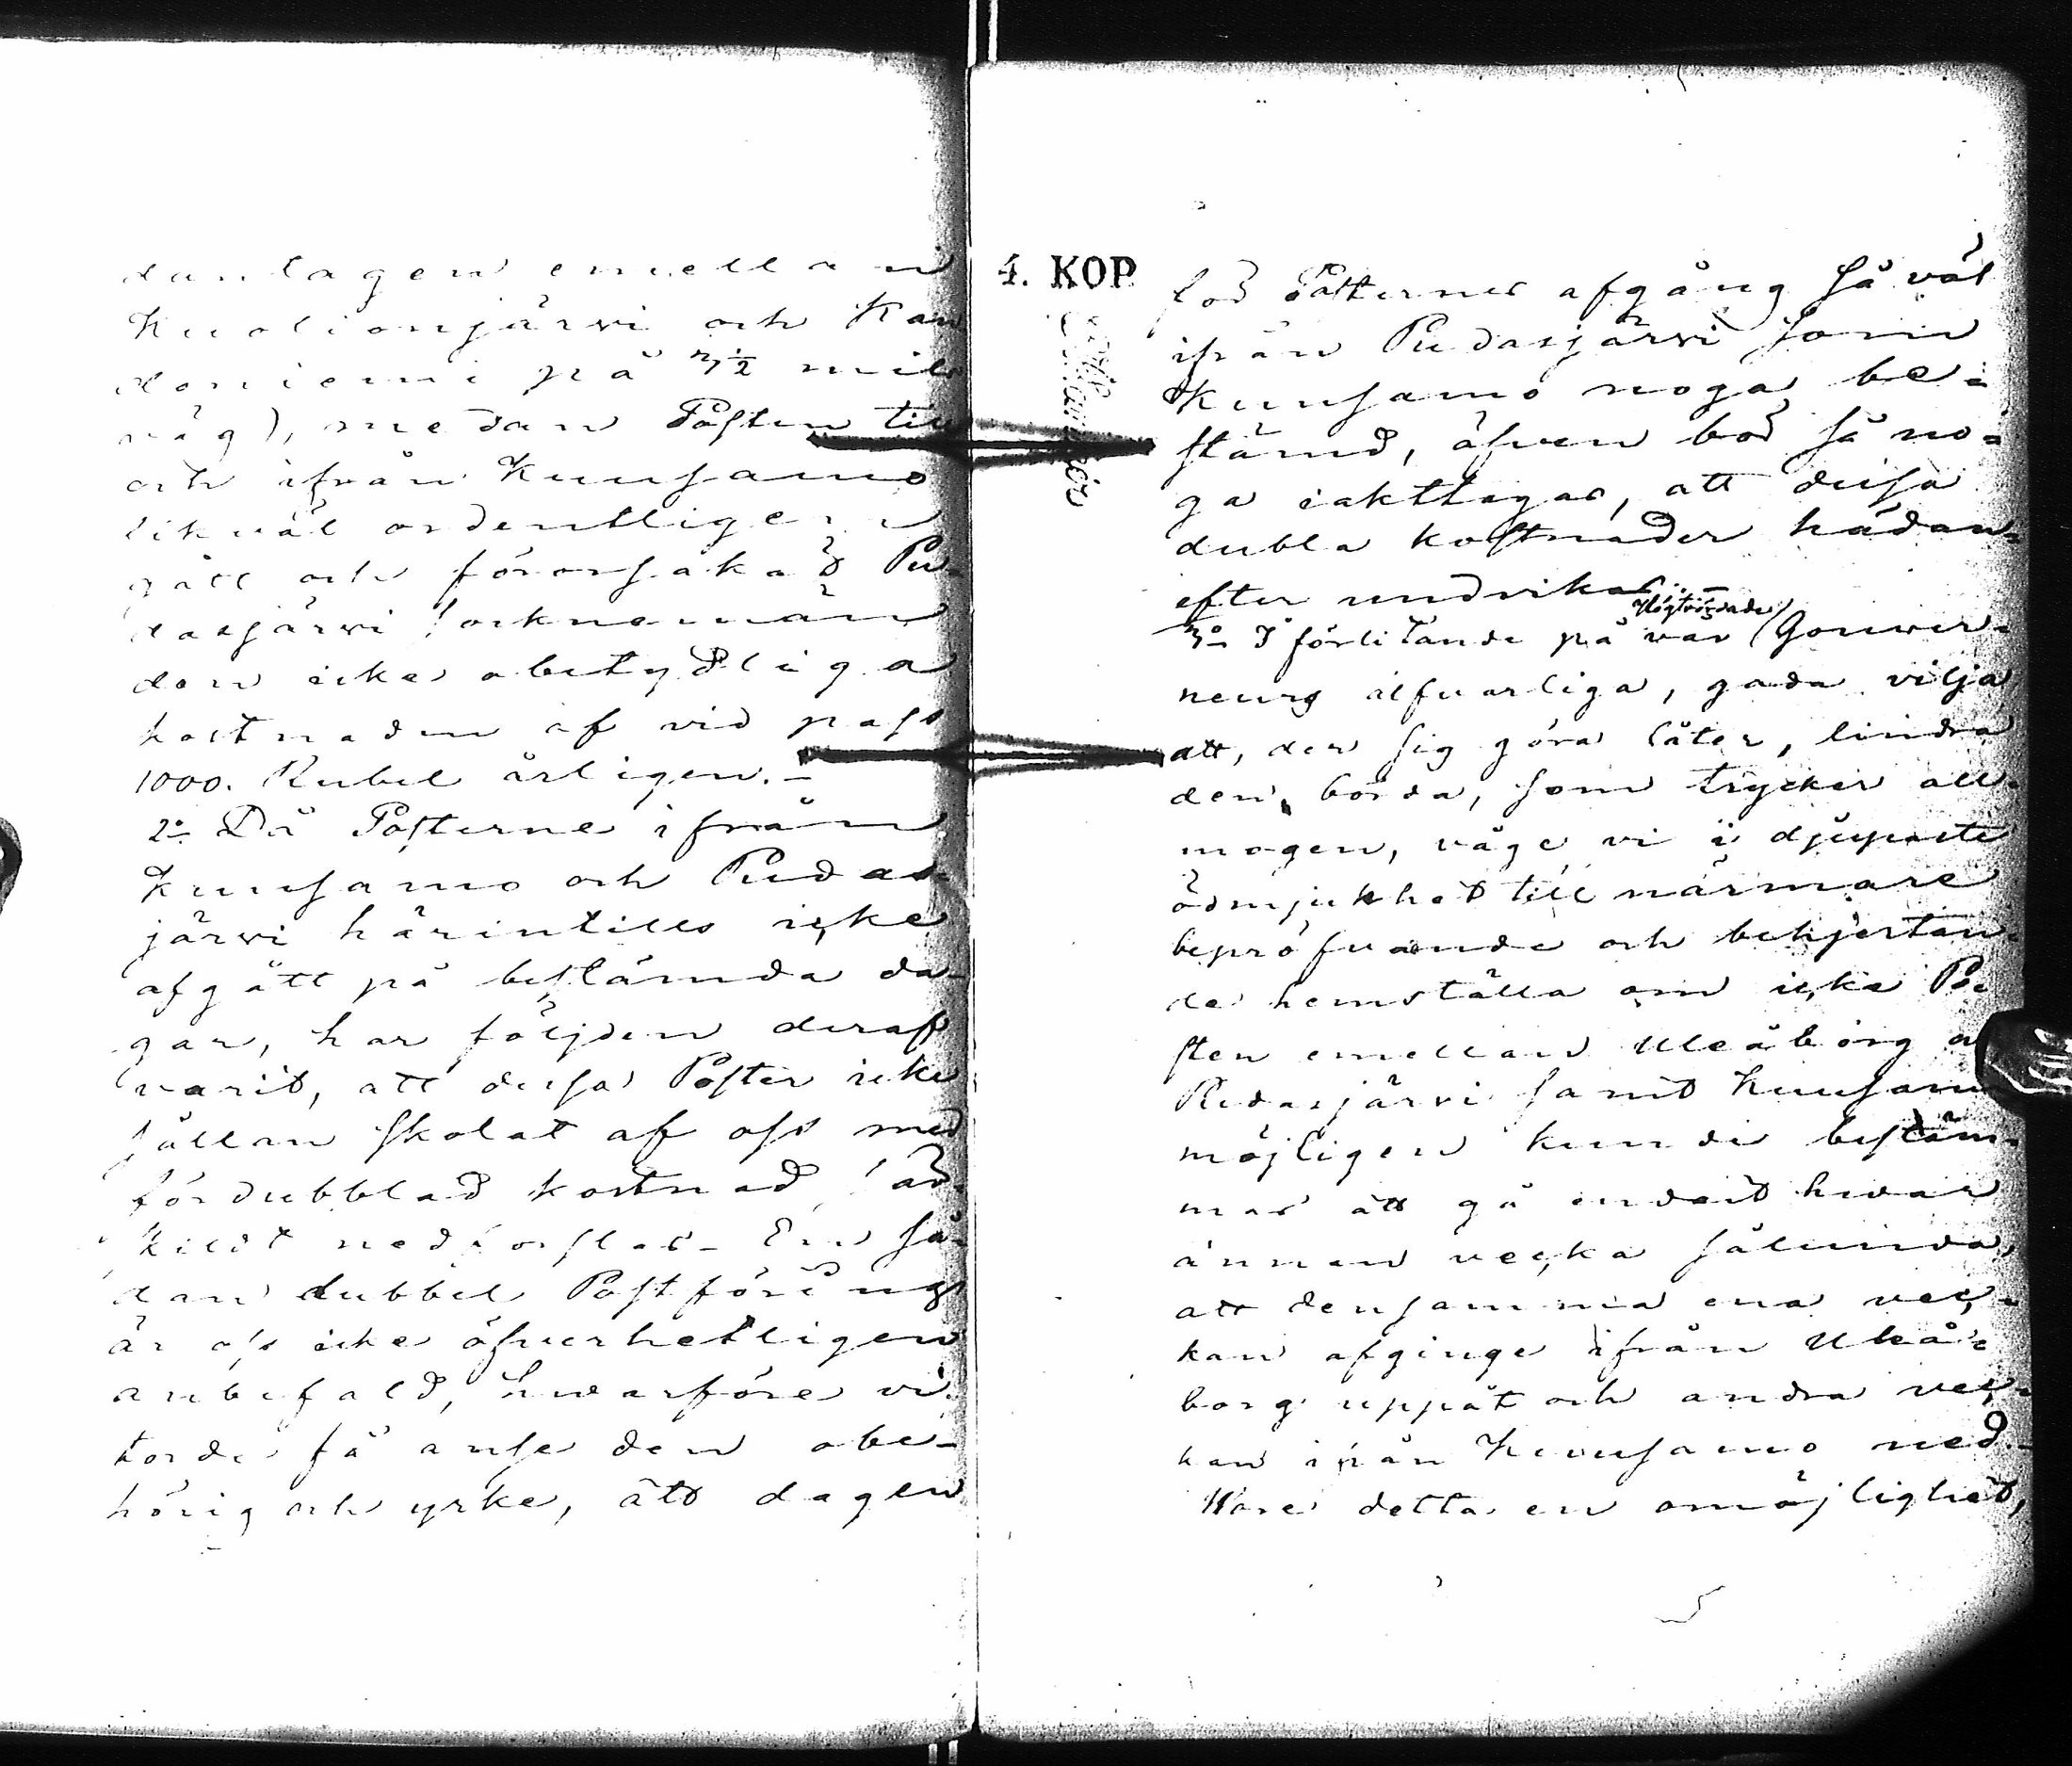 dantagen emellan
Kuolionjärvi och Kan
doniemi på 2 1/2 mils
väg), medan Posten till
och ifrån Kuusamo
likväl ordentligen
gått och förorsakad Pu-
dasjärvi socknemän
den icke obetydliga
kostnaden af vid pass
1000. Rubel årligen.-
2o Då Posterne ifrån
Kuusamo och Pudas-
järvi härintills icke
afgått på bestämda da-
gar, har följden deraf
varit, att dessa Poster icke
sällan skolat af oss med
fördubblad kostnad sär-
skildt nedforslas- En så-
dan dubbel Postföring
är oss icke öfverhetligen
anbefald, hvarföre vi
torde få anse den obe-
hörig och yrke, att dagen
4. KOP
för Posternes afgång så väl
ifrån Pudasjärvi som
Kuusamo noga be-
stämd, äfven bör så no-
ga iakttagas, att dessa
dubla kostnader hädan-
efter undvikas.-
Högtvördade
3o I förlitande på vår Gouver-
neurs alfvarliga, goda vilja
att, der sig göra låter, lindra
den börda, som trycker all-
mogen, våge vi i djupaste
ödmjukhet till närmare
bepröfvande och behjertan-
de hemställa om icke Po-
sten emellan Uleåborg o
Pudasjärvi samt Kuusam
möjligen kunde bestäm-
mas att gå endast hvar
annan vecka sålunda,
att densamma ena vec-
kan afginge ifrån Uleå-
borg uppåt och andra vec-
kan ifrån Kuusamo ned.-
Vore detta en omöjlighet,